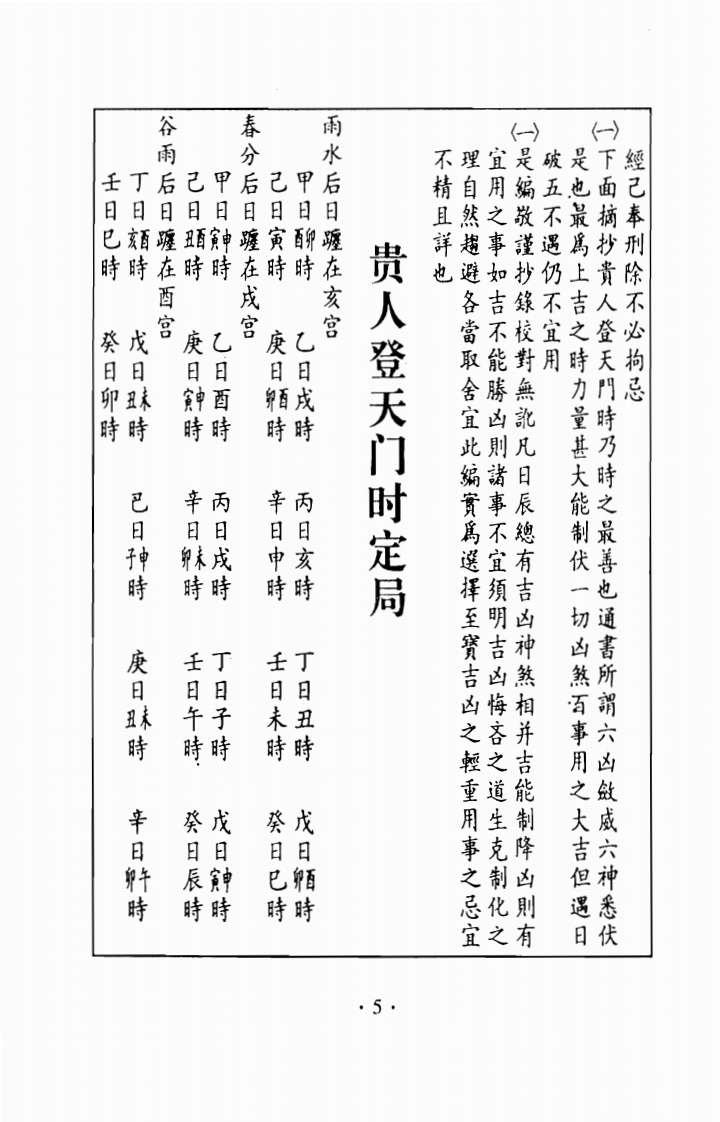 經已奉刑除不必拘忌
〈一〉下面摘抄貴人登天門時乃時之最善也通書所謂六凶斂威六神悉伏
是也最爲上吉之時力量甚大能制伏一切凶煞百事用之大吉但遇日
破五不遇仍不宜用
〈一〉是編敬謹抄錄校對無訛凡日辰總有吉凶神煞相并吉能制降凶則有
宜用之事如吉不能勝凶則諸事不宜須明吉凶悔吝之道生克制化之
理自然趨避各當取舍宜此編實爲選擇至寶吉凶之輕重用事之忌宜
不精且詳也
贵人登天门时定局
雨水后日躔在亥宫
甲日酉卯時 乙日戌時 丙日亥時 丁日丑時 戊日卯酉時
己日寅時 庚日卯酉時 辛日申時 壬日未時 癸日巳時
春分后日躔在戌宫
甲日寅申時 乙日酉時 丙日戌時 丁日子時 戊日寅申時
己日丑酉時 庚日寅申時 辛日卯未時 壬日午時 癸日辰時
谷雨后日躔在酉宫
丁日亥酉時 戊日丑未時 巳日子申時 庚日丑未時 辛日卯午時
壬日巳時 癸日卯時
·5·